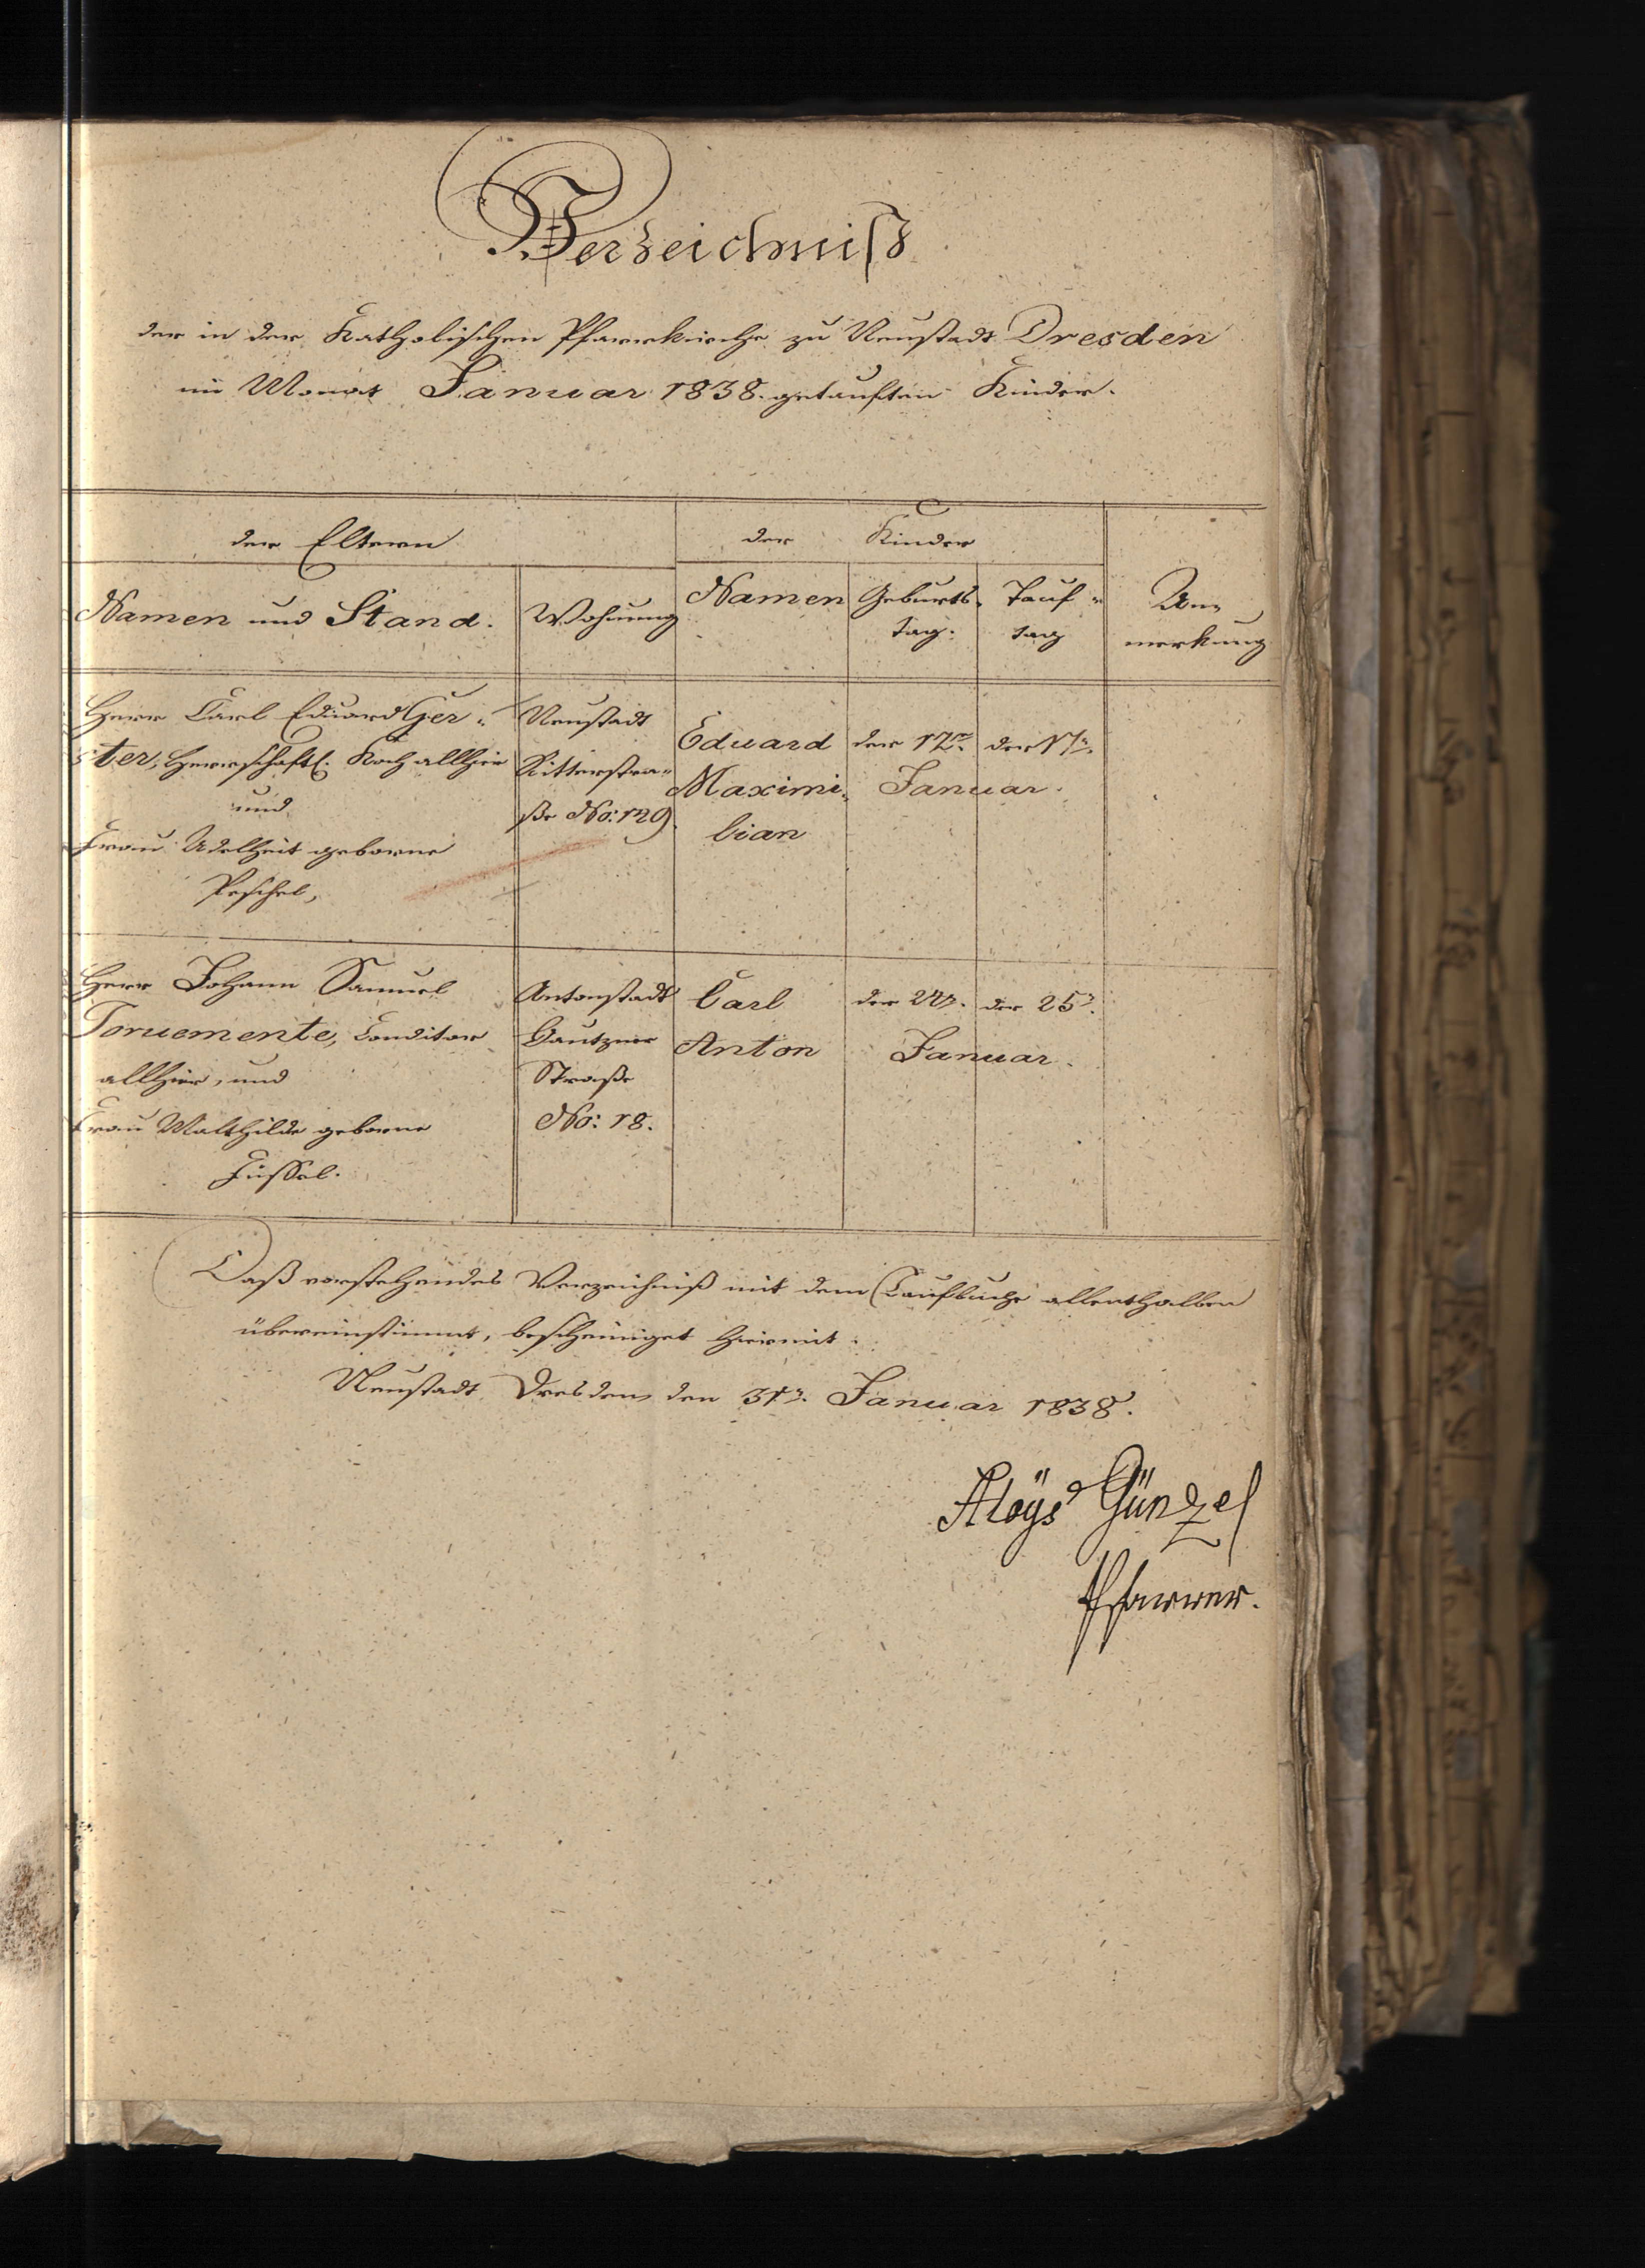 Verzeichniß
der in der Katholischen Pfarrkirche zu Neustadt Dresden
im Monat Januar 1838. getauften Kinder.
der Eltern
der Kinder
Namen und Stand.
Wohnung
Namen
Geburts-
tag.
Tauf-
tag
An-
merkung
Herr Carl Eduard Ger-
ster, Herrschaftl. Koch allhier
und
Frau Adelheit geborne
Peschel,
Neustadt
Ritterstra-
ße No: 129.
Eduard
Maximi-
lian
der 12n. der 17n.
Januar.
Herr Johann Samuel
Toruemente, Conditor
allhier, und
Frau Malthilde geborne
Füssel.
Antonstadt
Bautzner
Straße
No: 18.
Carl
Anton
der 22n. der 25n.
Januar.
Daß vorstehendes Verzeichniß mit dem Taufbuche allenthalben
übereinstimmt, bescheiniget hiermit.
Neustadt Dresden den 31n. Januar 1838.
Aloÿs Günzel
Pfarrer.